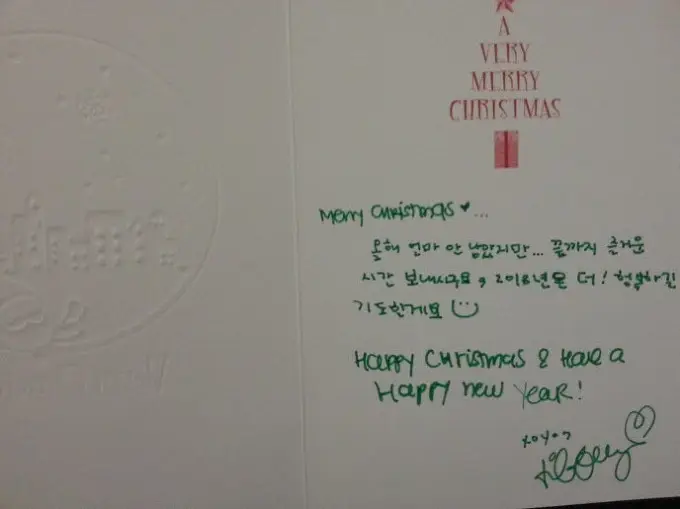 A
VERY
MERRY
CHRISTMAS
Merry Christmas ♥...
올해 얼마 안 남았지만... 끝까지 즐거운
시간 보내시구요, 2018년은 더! 행복하길
기도할게요
Happy Christmas & Have a
Happy new YeaR!
xoxox